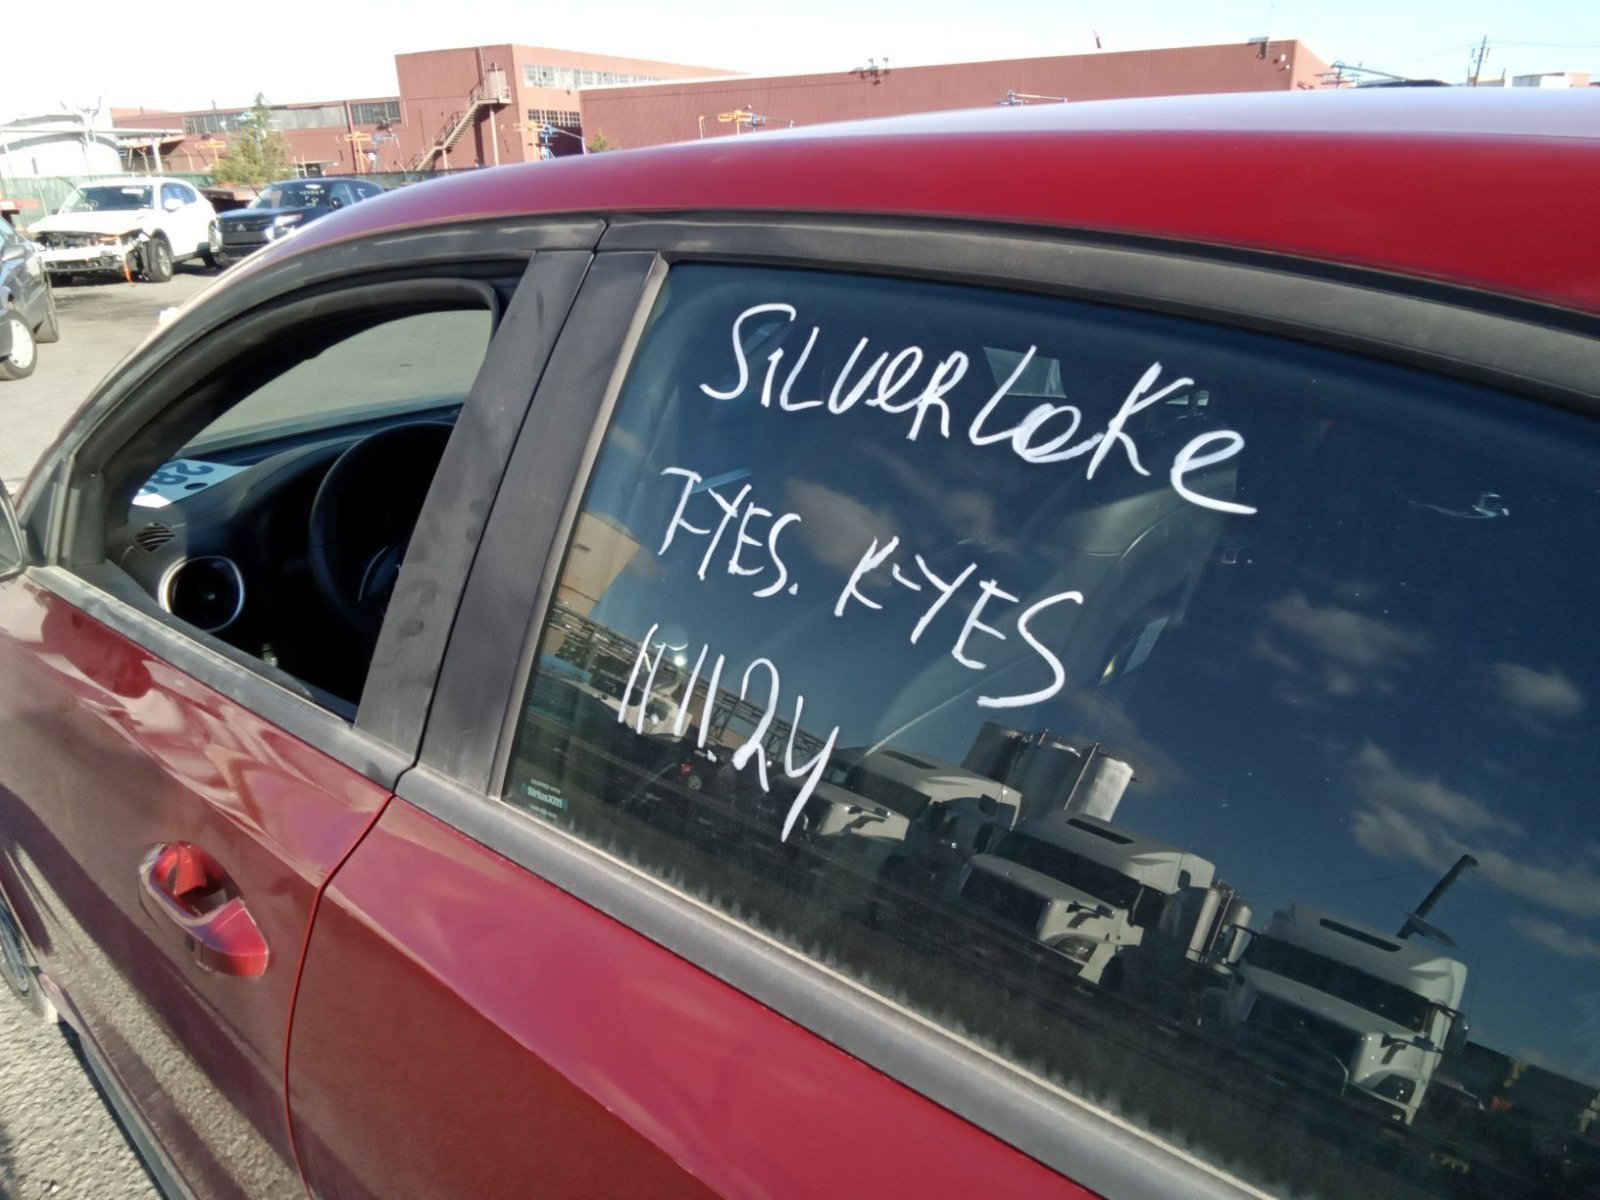 SiLVeRLaKe
T-YES. K-YES
11.11.24
EQUIPPED WITH
SiriusXM